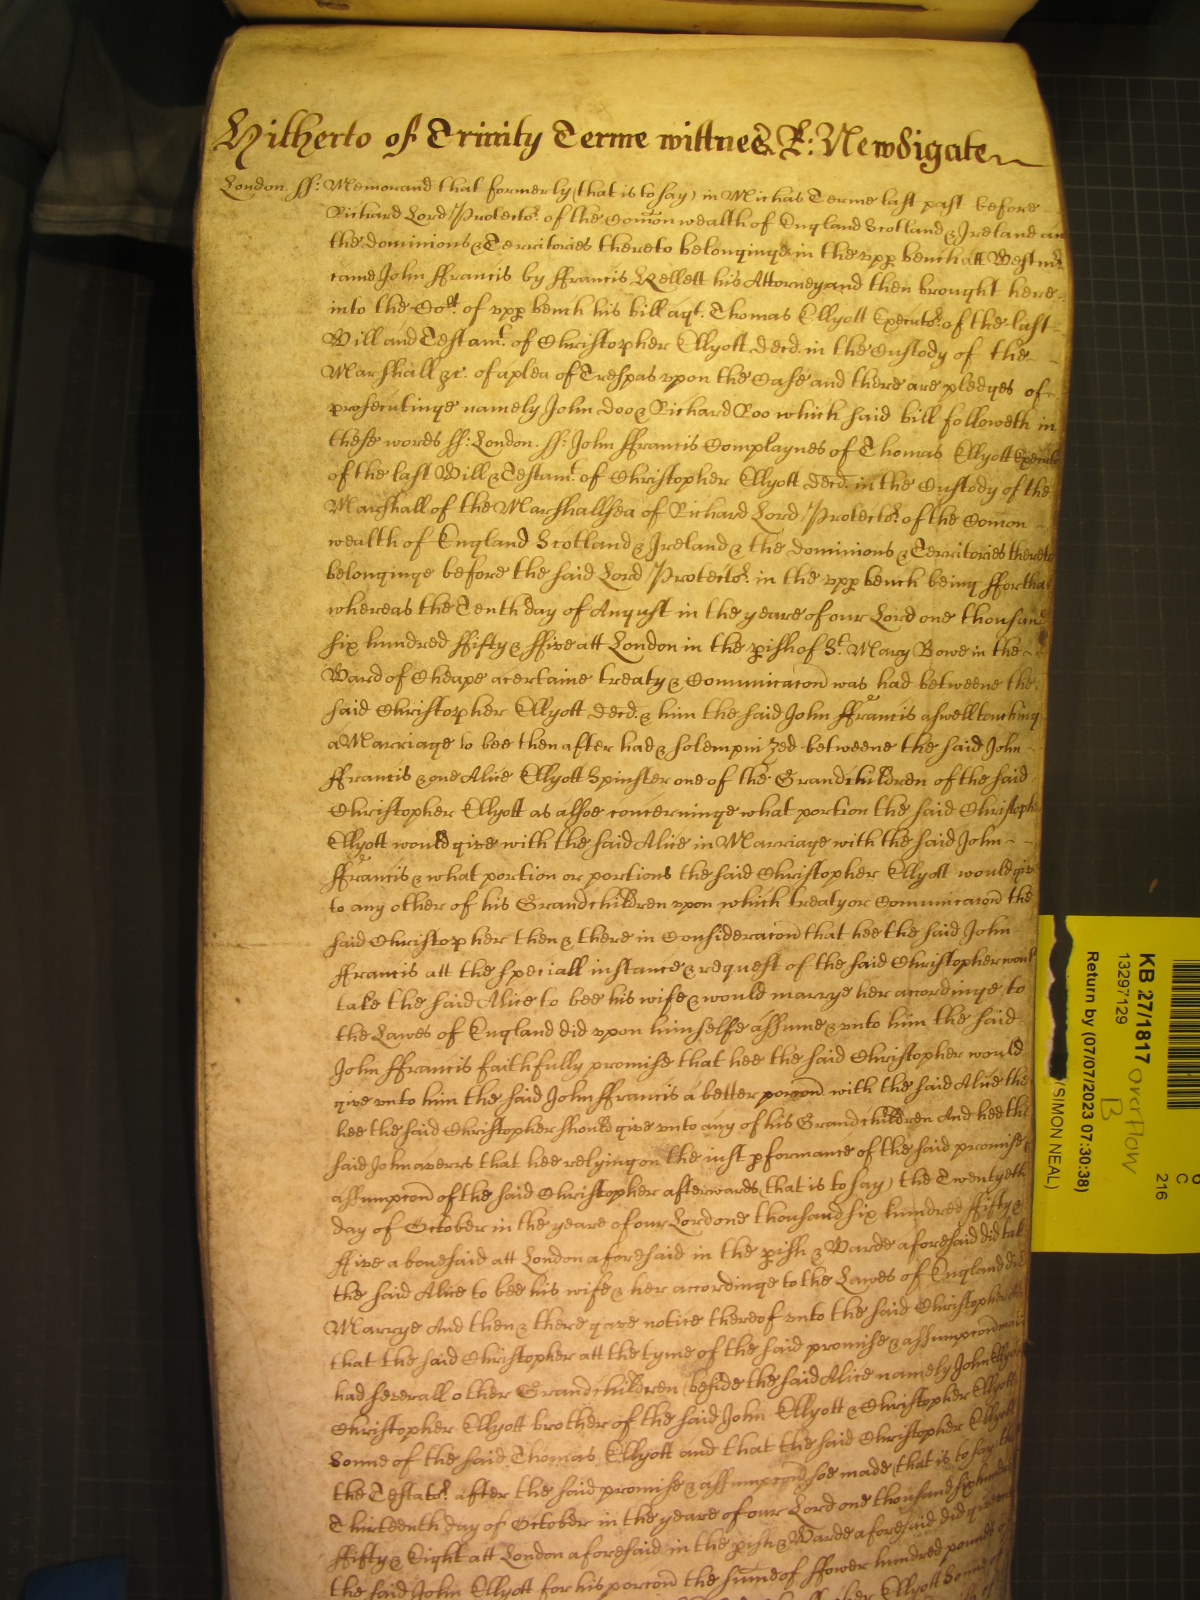 Hitherto of Trinity Terme wittnes R: Newdigate
London. ss: Memorand that formerly (that is to say) in Michas Terme last past before
Richard Lord Protector. of the Comon wealth of England Scotland & Ireland an
the dominions & Territories thereto belonginge in the vpp bench att Westmr
came John ffrancis by ffrancis Kellett his Attorney and then brought here
into the Cort. of vpp bench his bill agt. Thomas Ellyott Executor. of the last
Will and Testamt. of Christopher Ellyott decd. in the Custody of the
Marshall &c. of a plea of Trespas vpon the Case and there are pledges of
prosecutinge namely John Doo & Richard Roo which said bill followeth in
these words ss: London. ss: John ffrancis Complaynes of Thomas Ellyott Execut
of the last Will & Testamt. of Christopher Ellyott decd. in the Custody of the
Marshall of the Marshallsea of Richard Lord Protector. of the Comon
wealth of England Scotland & Ireland & the dominions & Territories thereto
belonginge before the said Lord Protector. in the vpp bench being ffortha
whereas the Tenth day of August in the yeare of our Lord one thousand
six hundred ffifty & ffive att London in the pish of St. Mary Bowe in the
Ward of Cheape a certaine treaty & Communicacon was had betweene the
said Christopher Ellyott decd. & him the said John ffrancis aswell touching
a Marriage to bee then after had & solempnized betweene the said John
ffrancis & one Alice Ellyott Spinster one of the Grandchildren of the said
Christopher Ellyott as alsoe concerninge what portion the said Christoph
Ellyott would give with the said Alice in Marriage with the said John
ffrancis & what portion or portions the said Christopher Ellyott would giv
to any other of his Grandchildren vpon which treaty or Communicacon the
said Christopher then & there in Consideracon that hee the said John
ffrancis att the speciall instance & request of the said Christopher woul
take the said Alice to bee his wife & would marrye her accordinge to
the Lawes of England did vpon himselfe assume & vnto him the said
John ffrancis faithfully promise that hee the said Christopher would
give vnto him the said John ffrancis a better porcon with the said Alice the
hee the said Christopher should give vnto any of his Grandchildren And hee the
said John averrs that hee relying on the iust pformance of the said promise
assumpcon of the said Christopher afterwards (that is to say) the Twentyeth
day of October in the yeare of our Lord one thousand six hundred ffifty &
ffive abovesaid att London aforesaid in the pish & Warde aforesaid did tak
the said Alice to bee his wife & her accordinge to the Lawes of England did
Marrye And then & there gave notice thereof vnto the said Christopher
that the said Christopher att the tyme of the said promise & assumpcon
had severall other Grandchildren beside the said Alice namely John Ellyott
Christopher Ellyott brother of the said John Ellyott & Christopher Ellyott
Sonne of the said Thomas Ellyott and that the said Christopher Ellyott
the Testator. after the said promise & assumpcon soe made (that is to say) the
Thirteenth day of October in the yeare of our Lord one thousand six hundred
ffifty & Eight att London aforesaid in the pish & Warde aforesaid did give
the said John Ellyott for his porcon the sume of ffower hundred pounds
Ellyott Sonne of
KB 27/1817
13297129
Overflow
B
C
216
Return by (07/07/2023 07:30:38)
(SIMON NEAL)